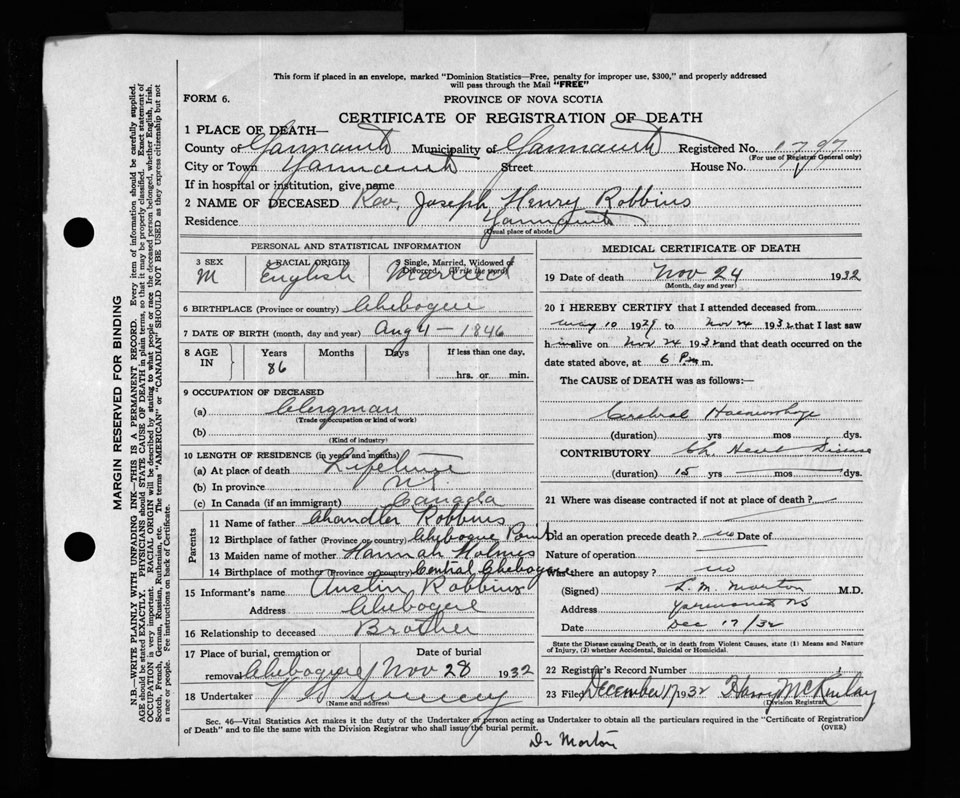 This form if placed in an envelope, marked "Dominion Statistics—Free, penalty for improper use, $300," and properly addressed
will pass through the Mail "FREE"
FORM 6.
PROVINCE OF NOVA SCOTIA
CERTIFICATE OF REGISTRATION OF DEATH
1 PLACE OF DEATH—
County of Yarmouth Municipality of Yarmouth Registered No. 1797
(For use of Registrar General only)
City or Town Yarmouth Street House No.
If in hospital or institution, give name
2 NAME OF DECEASED Rev. Joseph Henry Robbins
Residence Yarmouth
(Usual place of abode)
PERSONAL AND STATISTICAL INFORMATION
3 SEX 4 RACIAL ORIGIN 5 Single, Married, Widowed or Divorced (Write the word)
M English Married
6 BIRTHPLACE (Province or country) Chebogue
7 DATE OF BIRTH (month, day and year) Aug 4 — 1846
8 AGE IN Years Months Days If less than one day,
86 hrs. or min.
9 OCCUPATION OF DECEASED
(a) Clergman
(Trade occupation or kind of work)
(b)
(Kind of industry)
10 LENGTH OF RESIDENCE (in years and months)
(a) At place of death Lifetime
(b) In province N.S.
(c) In Canada (if an immigrant) Canada
Parents
11 Name of father Chandler Robbins
12 Birthplace of father (Province or country) Chebogue Point
13 Maiden name of mother Hannah Holmes
14 Birthplace of mother (Province or country) Central Chebogue
15 Informant's name Austin Robbins
Address Chebogue
16 Relationship to deceased Brother
17 Place of burial, cremation or removal Date of burial
Chebogue Nov 28 1932
18 Undertaker Sweeny
(Name and address)
MEDICAL CERTIFICATE OF DEATH
19 Date of death Nov 24 1932
(Month, day and year)
20 I HEREBY CERTIFY that I attended deceased from
May 10 1929 to Nov 24 1932 that I last saw
him alive on Nov 24 1932 and that death occurred on the
date stated above, at 6 P. m.
The CAUSE of DEATH was as follows:—
Cerebral Haemorrhage
(duration) yrs mos dys.
CONTRIBUTORY Ch. Heart Disease
(duration) 15 yrs mos dys.
21 Where was disease contracted if not at place of death?
Did an operation precede death? no Date of
Nature of operation
Was there an autopsy? no
(Signed) L. M. Morton M.D.
Address Yarmouth NS
Date Dec 17/32
State the Disease causing Death, or in death from Violent Causes, state (1) Means and Nature
of Injury, (2) whether Accidental, Suicidal or Homicidal.
22 Registrar's Record Number
23 Filed December 17 1932 Harry McKinlay
(Division Registrar)
Sec. 46—Vital Statistics Act makes it the duty of the Undertaker or person acting as Undertaker to obtain all the particulars required in the "Certificate of Registration
of Death" and to file the same with the Division Registrar who shall issue the burial permit.
(OVER)
Dr Morton
MARGIN RESERVED FOR BINDING
N.B.—WRITE PLAINLY WITH UNFADING INK—THIS IS A PERMANENT RECORD. Every item of information should be carefully supplied.
AGE should be stated EXACTLY. PHYSICIANS should STATE CAUSE OF DEATH in plain terms, so that it may be properly classified. Exact statement of
OCCUPATION is very important. RACIAL ORIGIN will be described by stating to what people or race the deceased person belonged, whether English, Irish,
Scotch, French, German, Russian, Ruthenian, etc. The terms "AMERICAN" or "CANADIAN" SHOULD NOT BE USED as they express citizenship but not
a race or people. Fee instructions on back of Certificate.